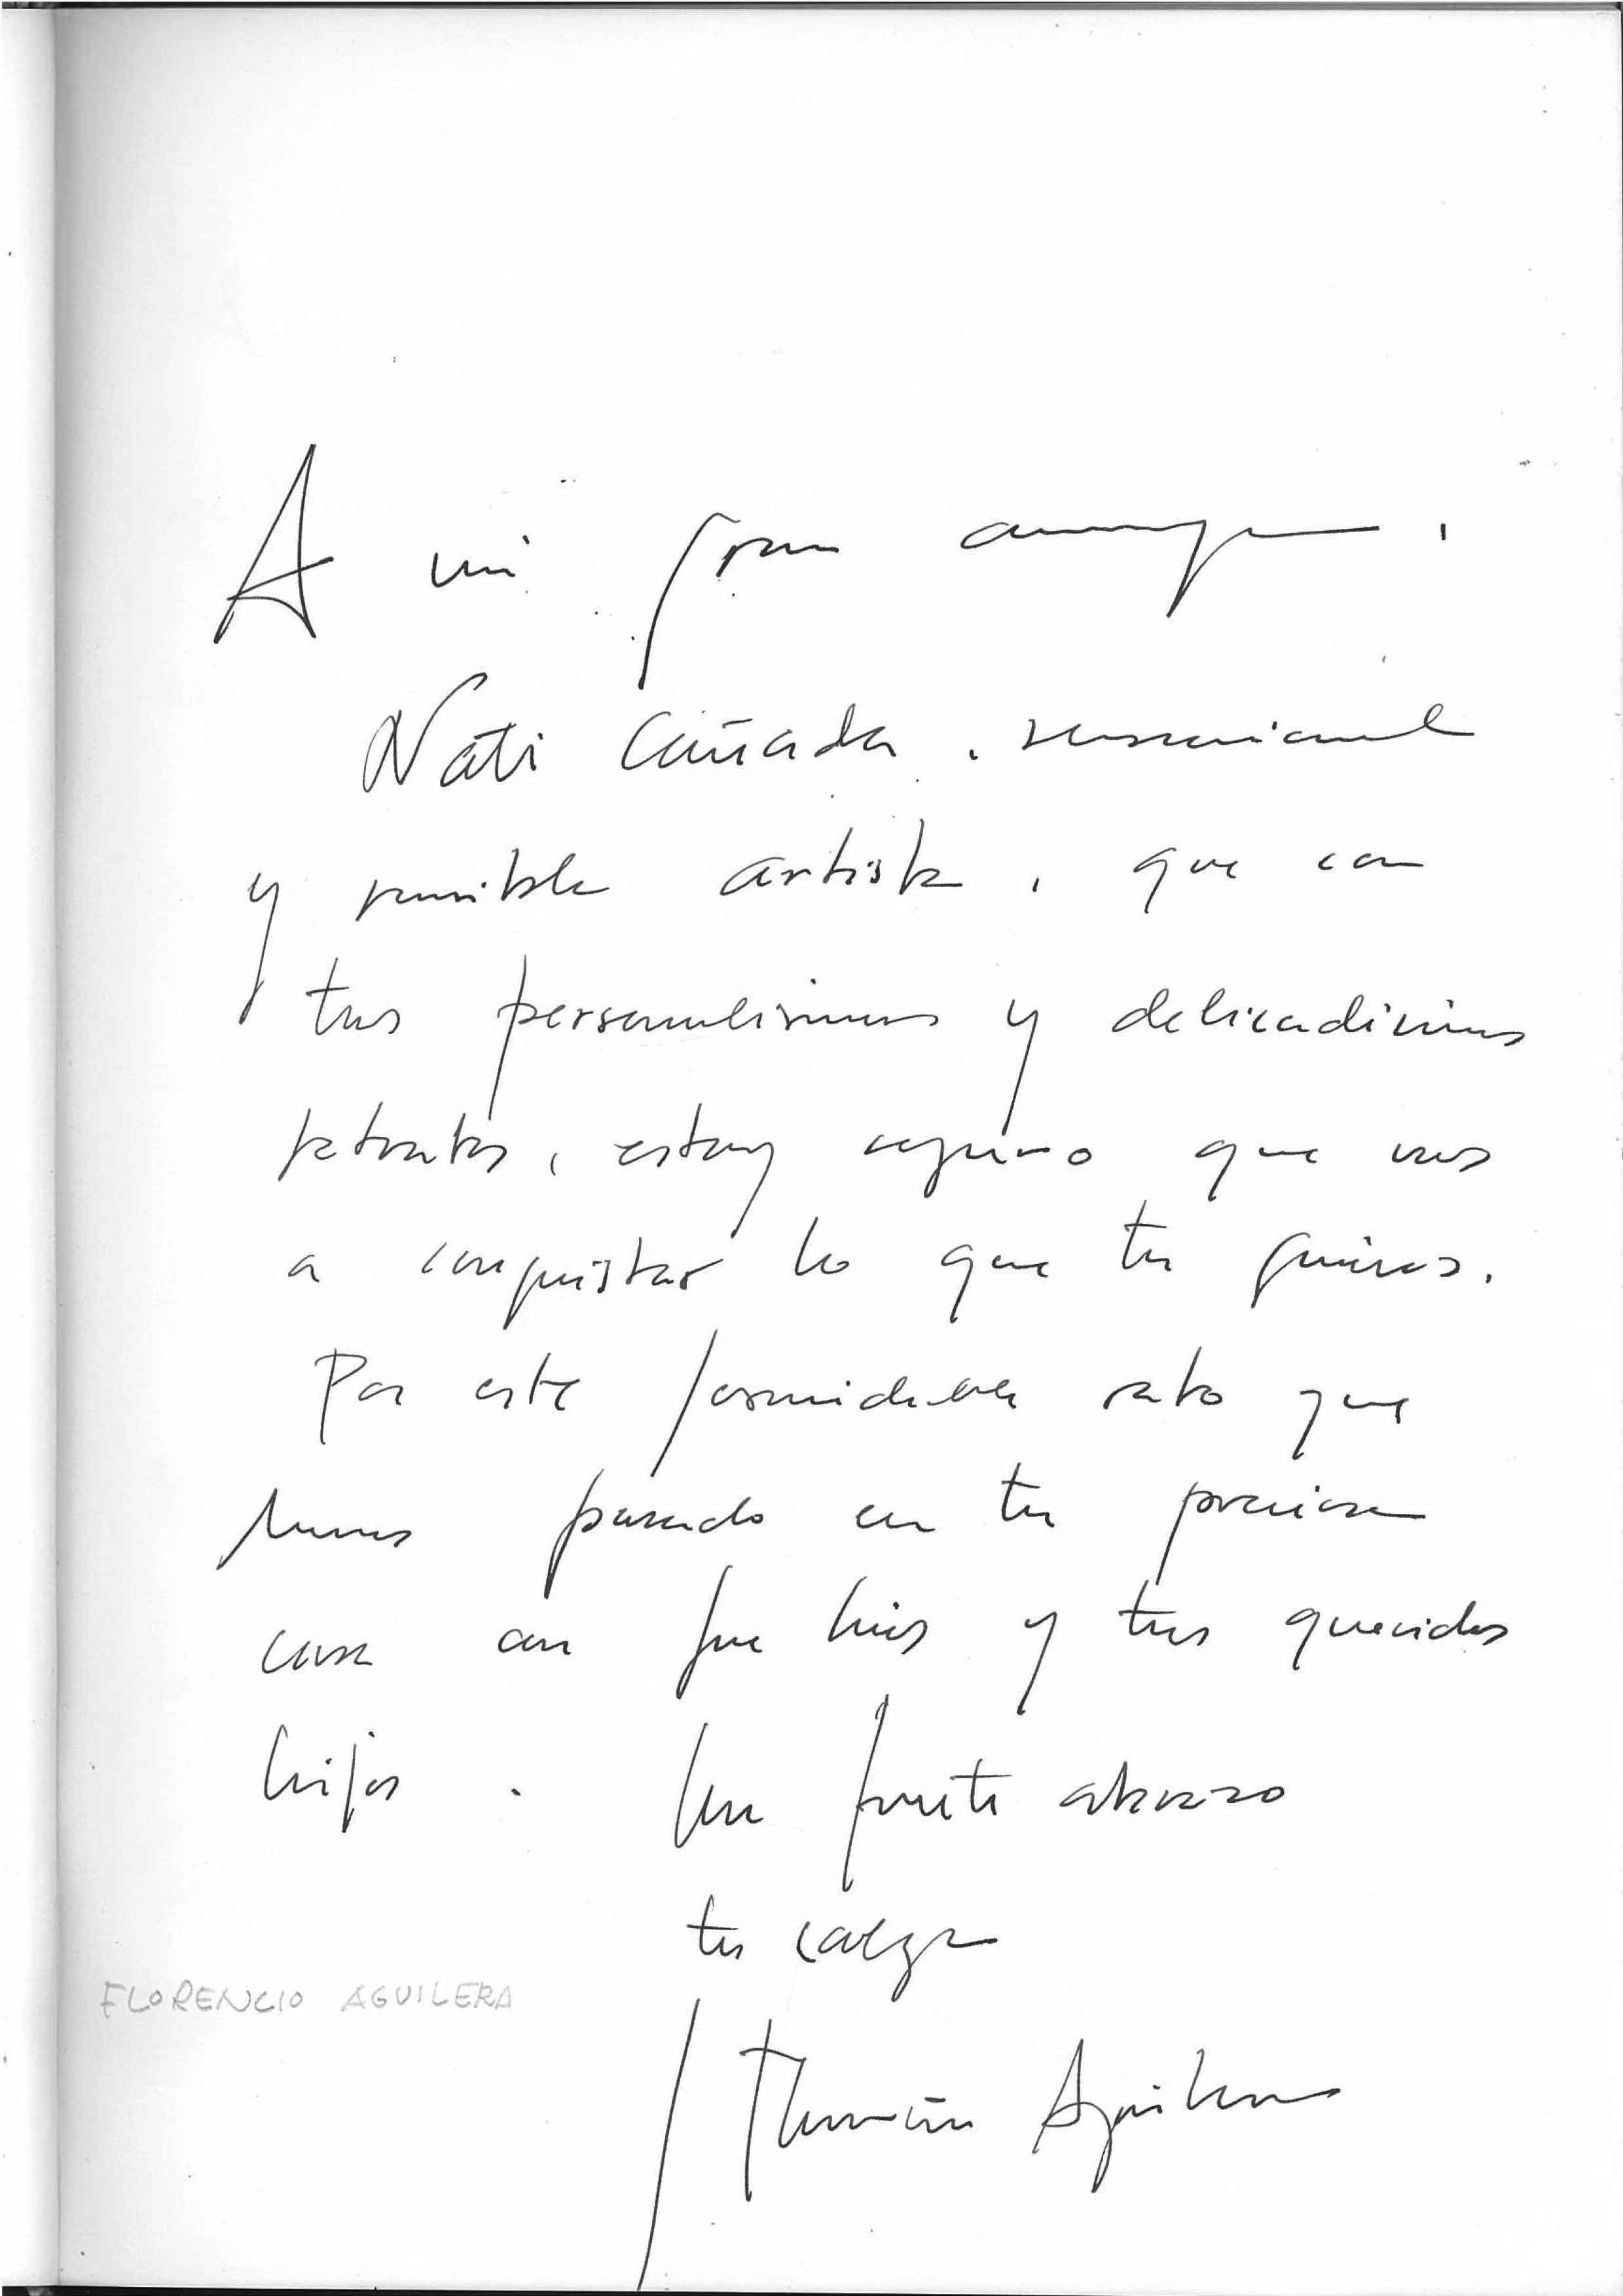 A mi gran amiga,
Nati Cañada, sensacional
y sensible artista, que con
tus personalisimos y delicadisimos
retratos, estoy seguro que vas
a conquistar lo que tu quieras.
Por este formidable rato que
hemos pasado en tu preciosa
casa con Luis y tus queridos
hijos. Un fuerte abrazo
tu colega
FLORENCIO AGUILERA
Florencio Aguilera